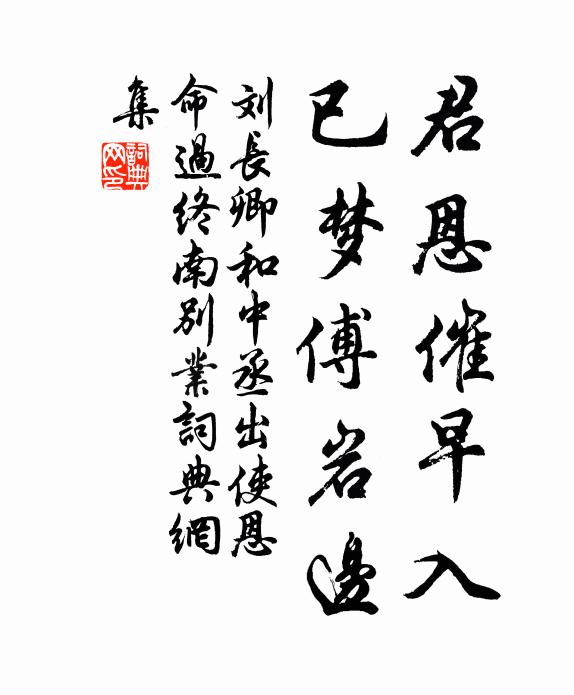 君恩催早入
已梦傅岩邊
刘長卿和中丞出使恩
命過终南别業詞典網
集
詞典
网印